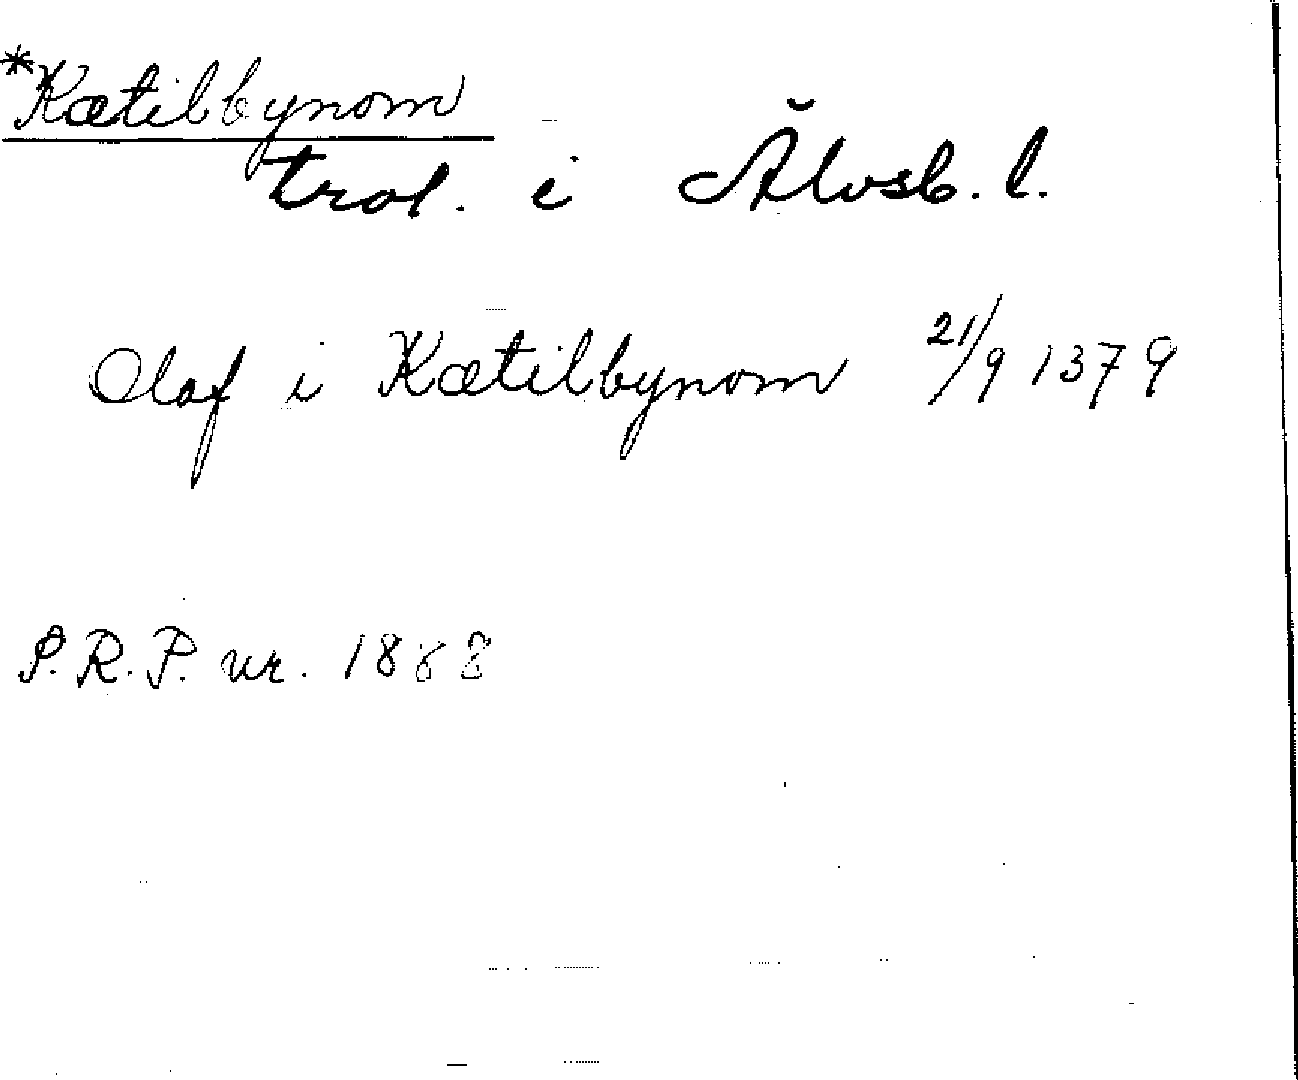 *Kætilbynom
trol. i Älvsb. l.
Olaf i Kætilbynom 21/9 1379
P.R.P. nr. 1888